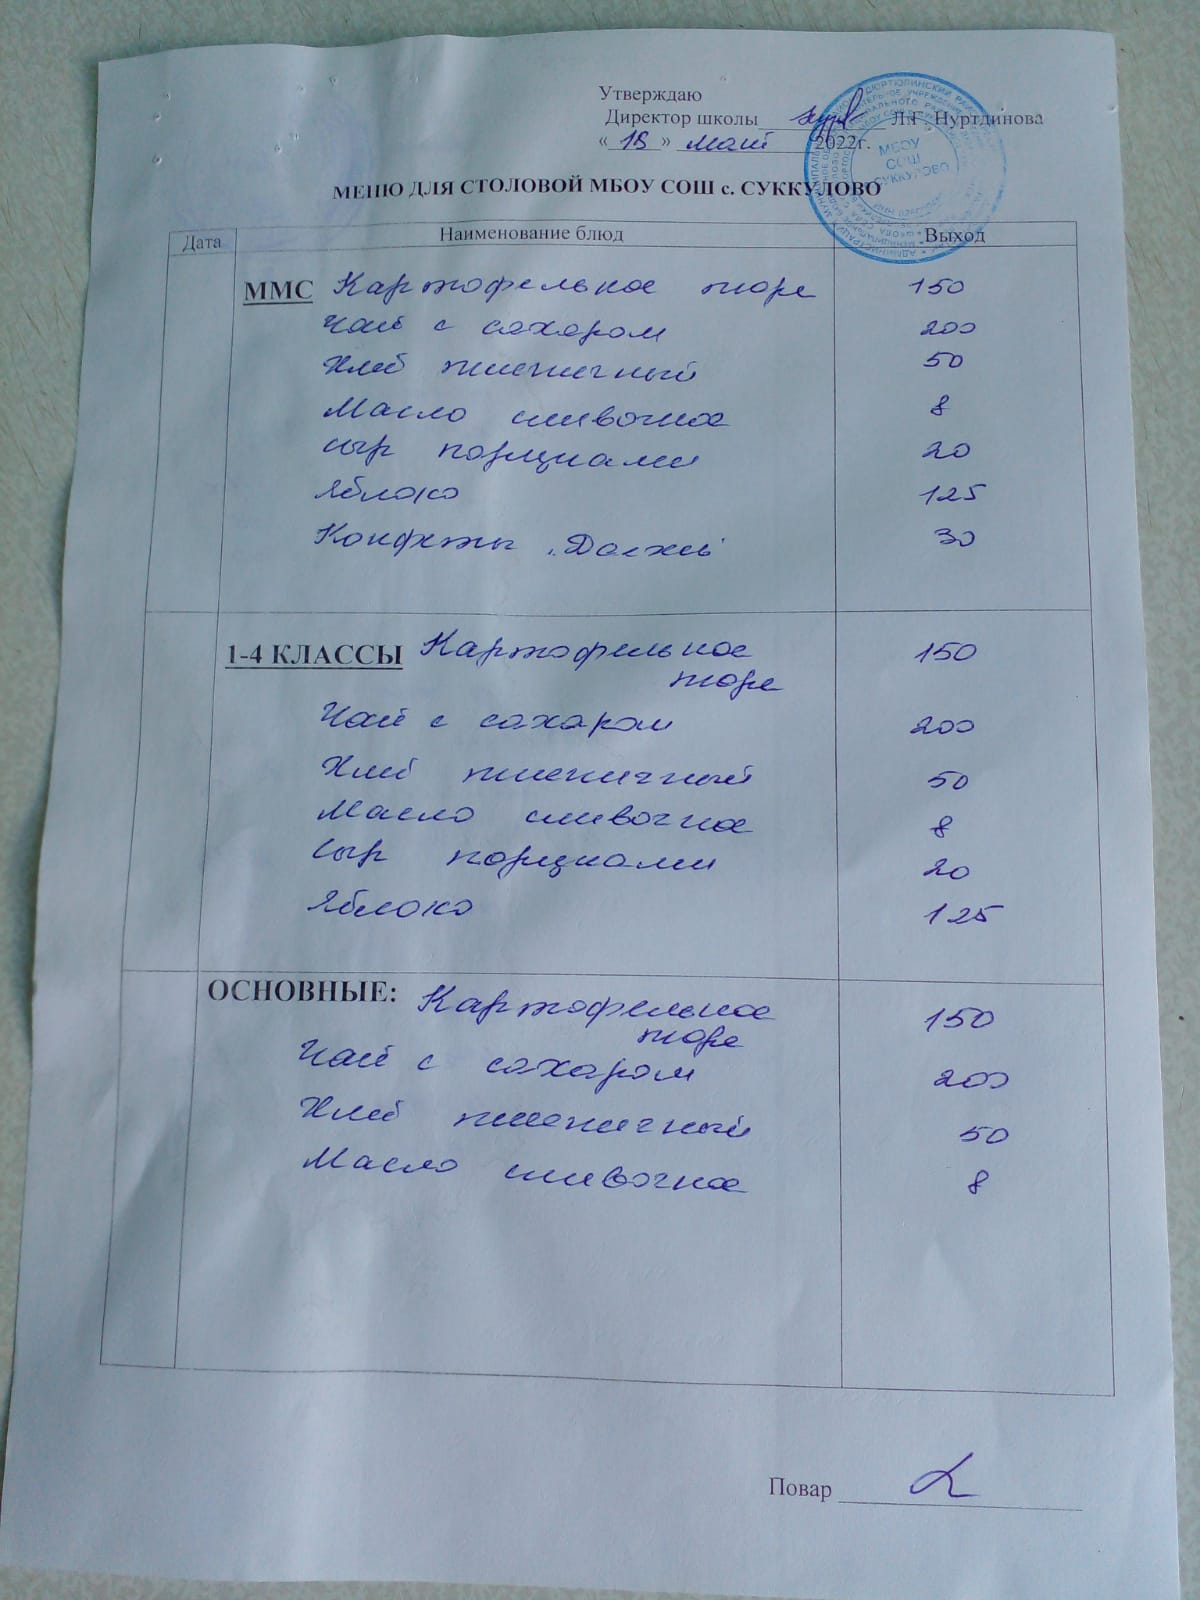 Утверждаю
Директор школы Л.Г. Нуртдинова
«18» май 2022г.
МБОУ
СОШ
СУККУЛОВО
МЕНЮ ДЛЯ СТОЛОВОЙ МБОУ СОШ с. СУККУЛОВО
Дата Наименование блюд Выход
ММС Картофельное пюре 150
Чай с сахаром 200
Хлеб пшеничный 50
Масло сливочное 8
Сыр порциами 20
Яблоко 125
Конфеты 30
1-4 КЛАССЫ Картофельное 150
пюре
Чай с сахаром 200
Хлеб пшеничный 50
Масло сливочное 8
Сыр порциами 20
Яблоко 125
ОСНОВНЫЕ: Картофельное 150
пюре
Чай с сахаром 200
Хлеб пшеничный 50
Масло сливочное 8
Повар